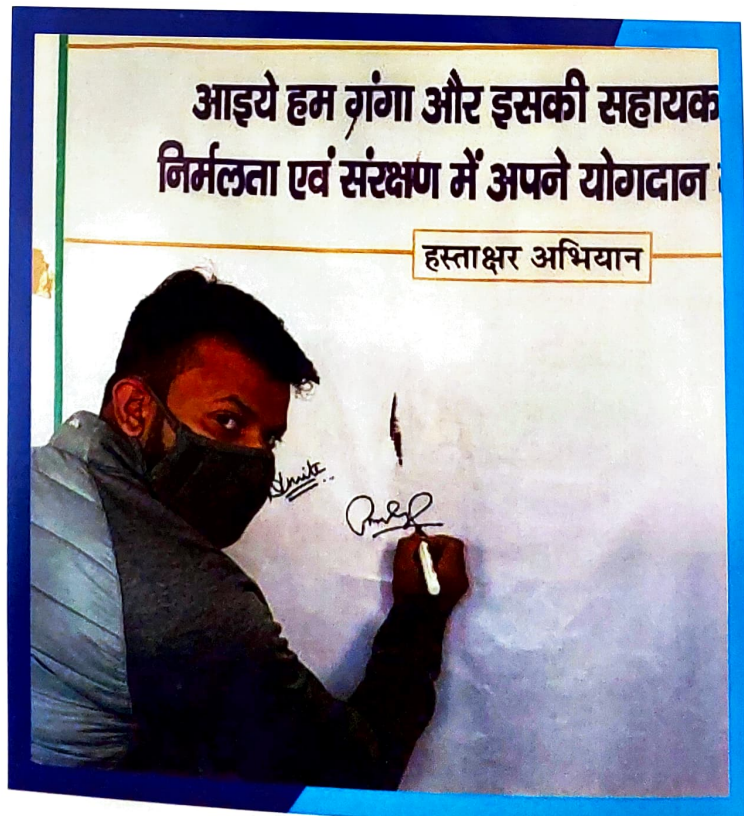 आइये हम गंगा और इसकी सहायक
निर्मलता एवं संरक्षण में अपने योगदान
हस्ताक्षर अभियान